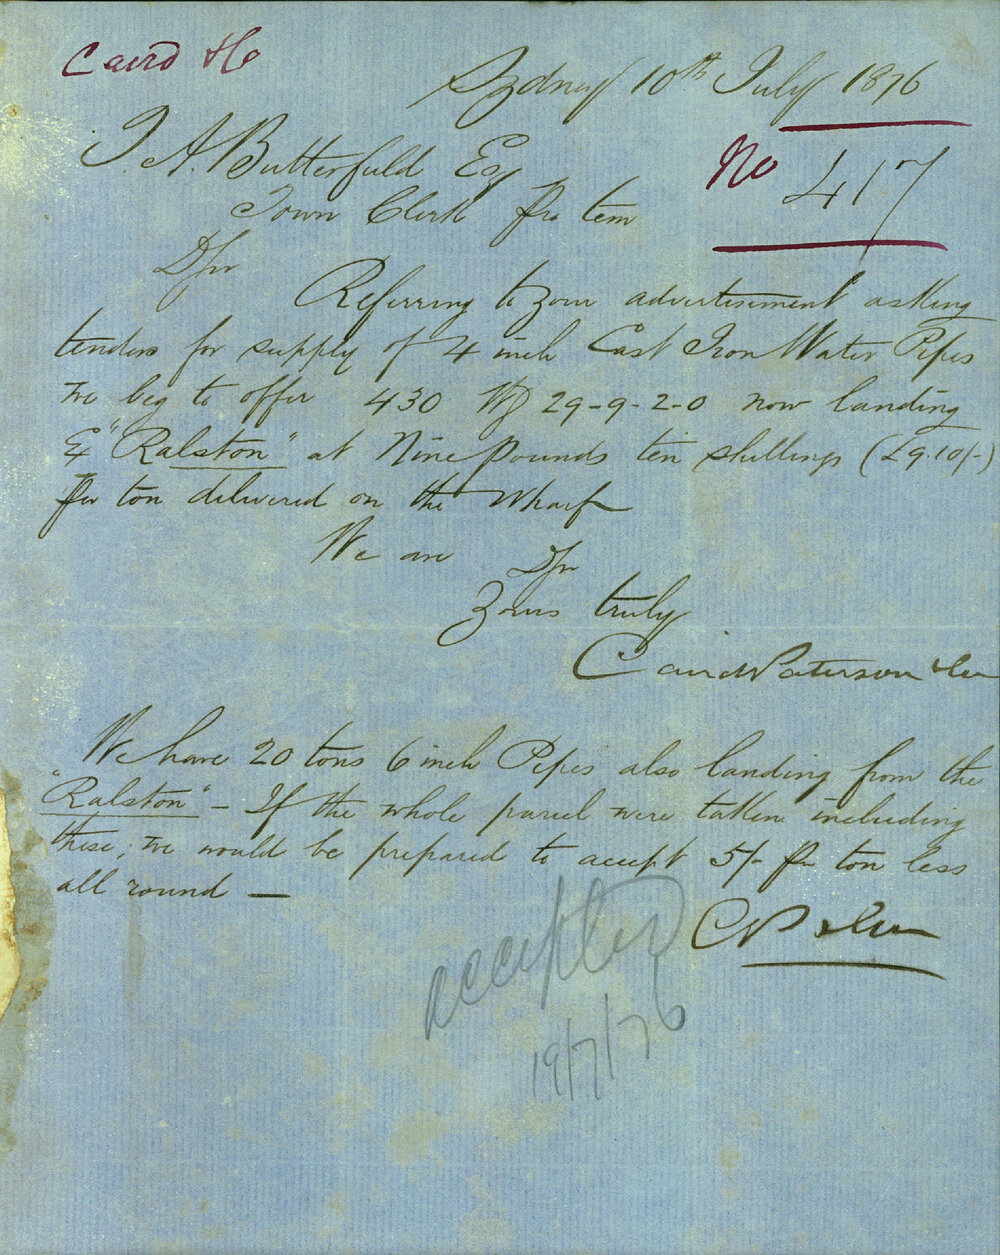 Caird & Co
Sydney 10th July 1876
No 417
J. A. Butterfield Esq
Town Clerk Pro tem
D/Sir
Referring to your advertisement asking
tenders for supply of 4 inch Cast Iron Water Pipes
we beg to offer 430 29-9-2-0 now landing
"Ralston" at Nine Pounds ten shillings (£9.10/-)
Per ton delivered on the Wharf
We are D/Sir
Yours truly
Caird Paterson & Co
We have 20 tons 6 inch Pipes also landing from the
"Ralston" - If the whole parcel were taken including
these, we would be prepared to accept 5/- Per ton less
all round —
C P & Co
accepted
19/7/76